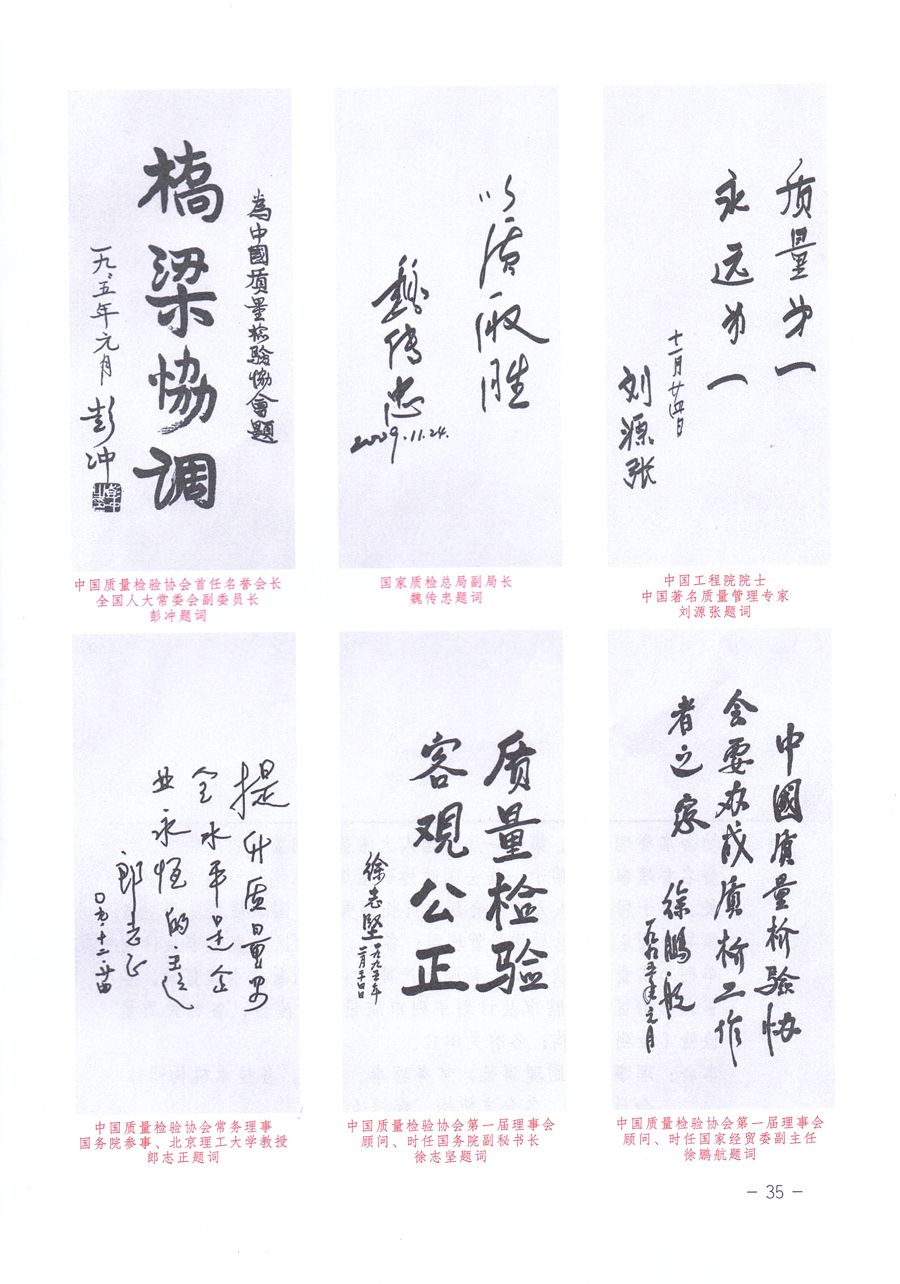 為中國质量检验协會題
橋梁協调
一九九五年元月 彭冲
中国质量检验协会首任名誉会长
全国人大常委会副委员长
彭冲题词
以质取胜
魏传忠
2009.11.24.
国家质检总局副局长
魏传忠题词
质量第一
永远第一
十一月廿四日
刘源张
中国工程院院士
中国著名质量管理专家
刘源张题词
提升质量安
全水平是企
业永恒的主题
郎志正
〇九·十二·廿四
中国质量检验协会常务理事
国务院参事、北京理工大学教授
郎志正题词
质量检验
客观公正
徐志坚
一九九五年
中国质量检验协会第一届理事会
顾问、时任国务院副秘书长
徐志坚题词
中國质量检验协
会要办成质检工作
者之家
徐鹏航
中国质量检验协会第一届理事会
顾问、时任国家经贸委副主任
徐鹏航题词
- 35 -